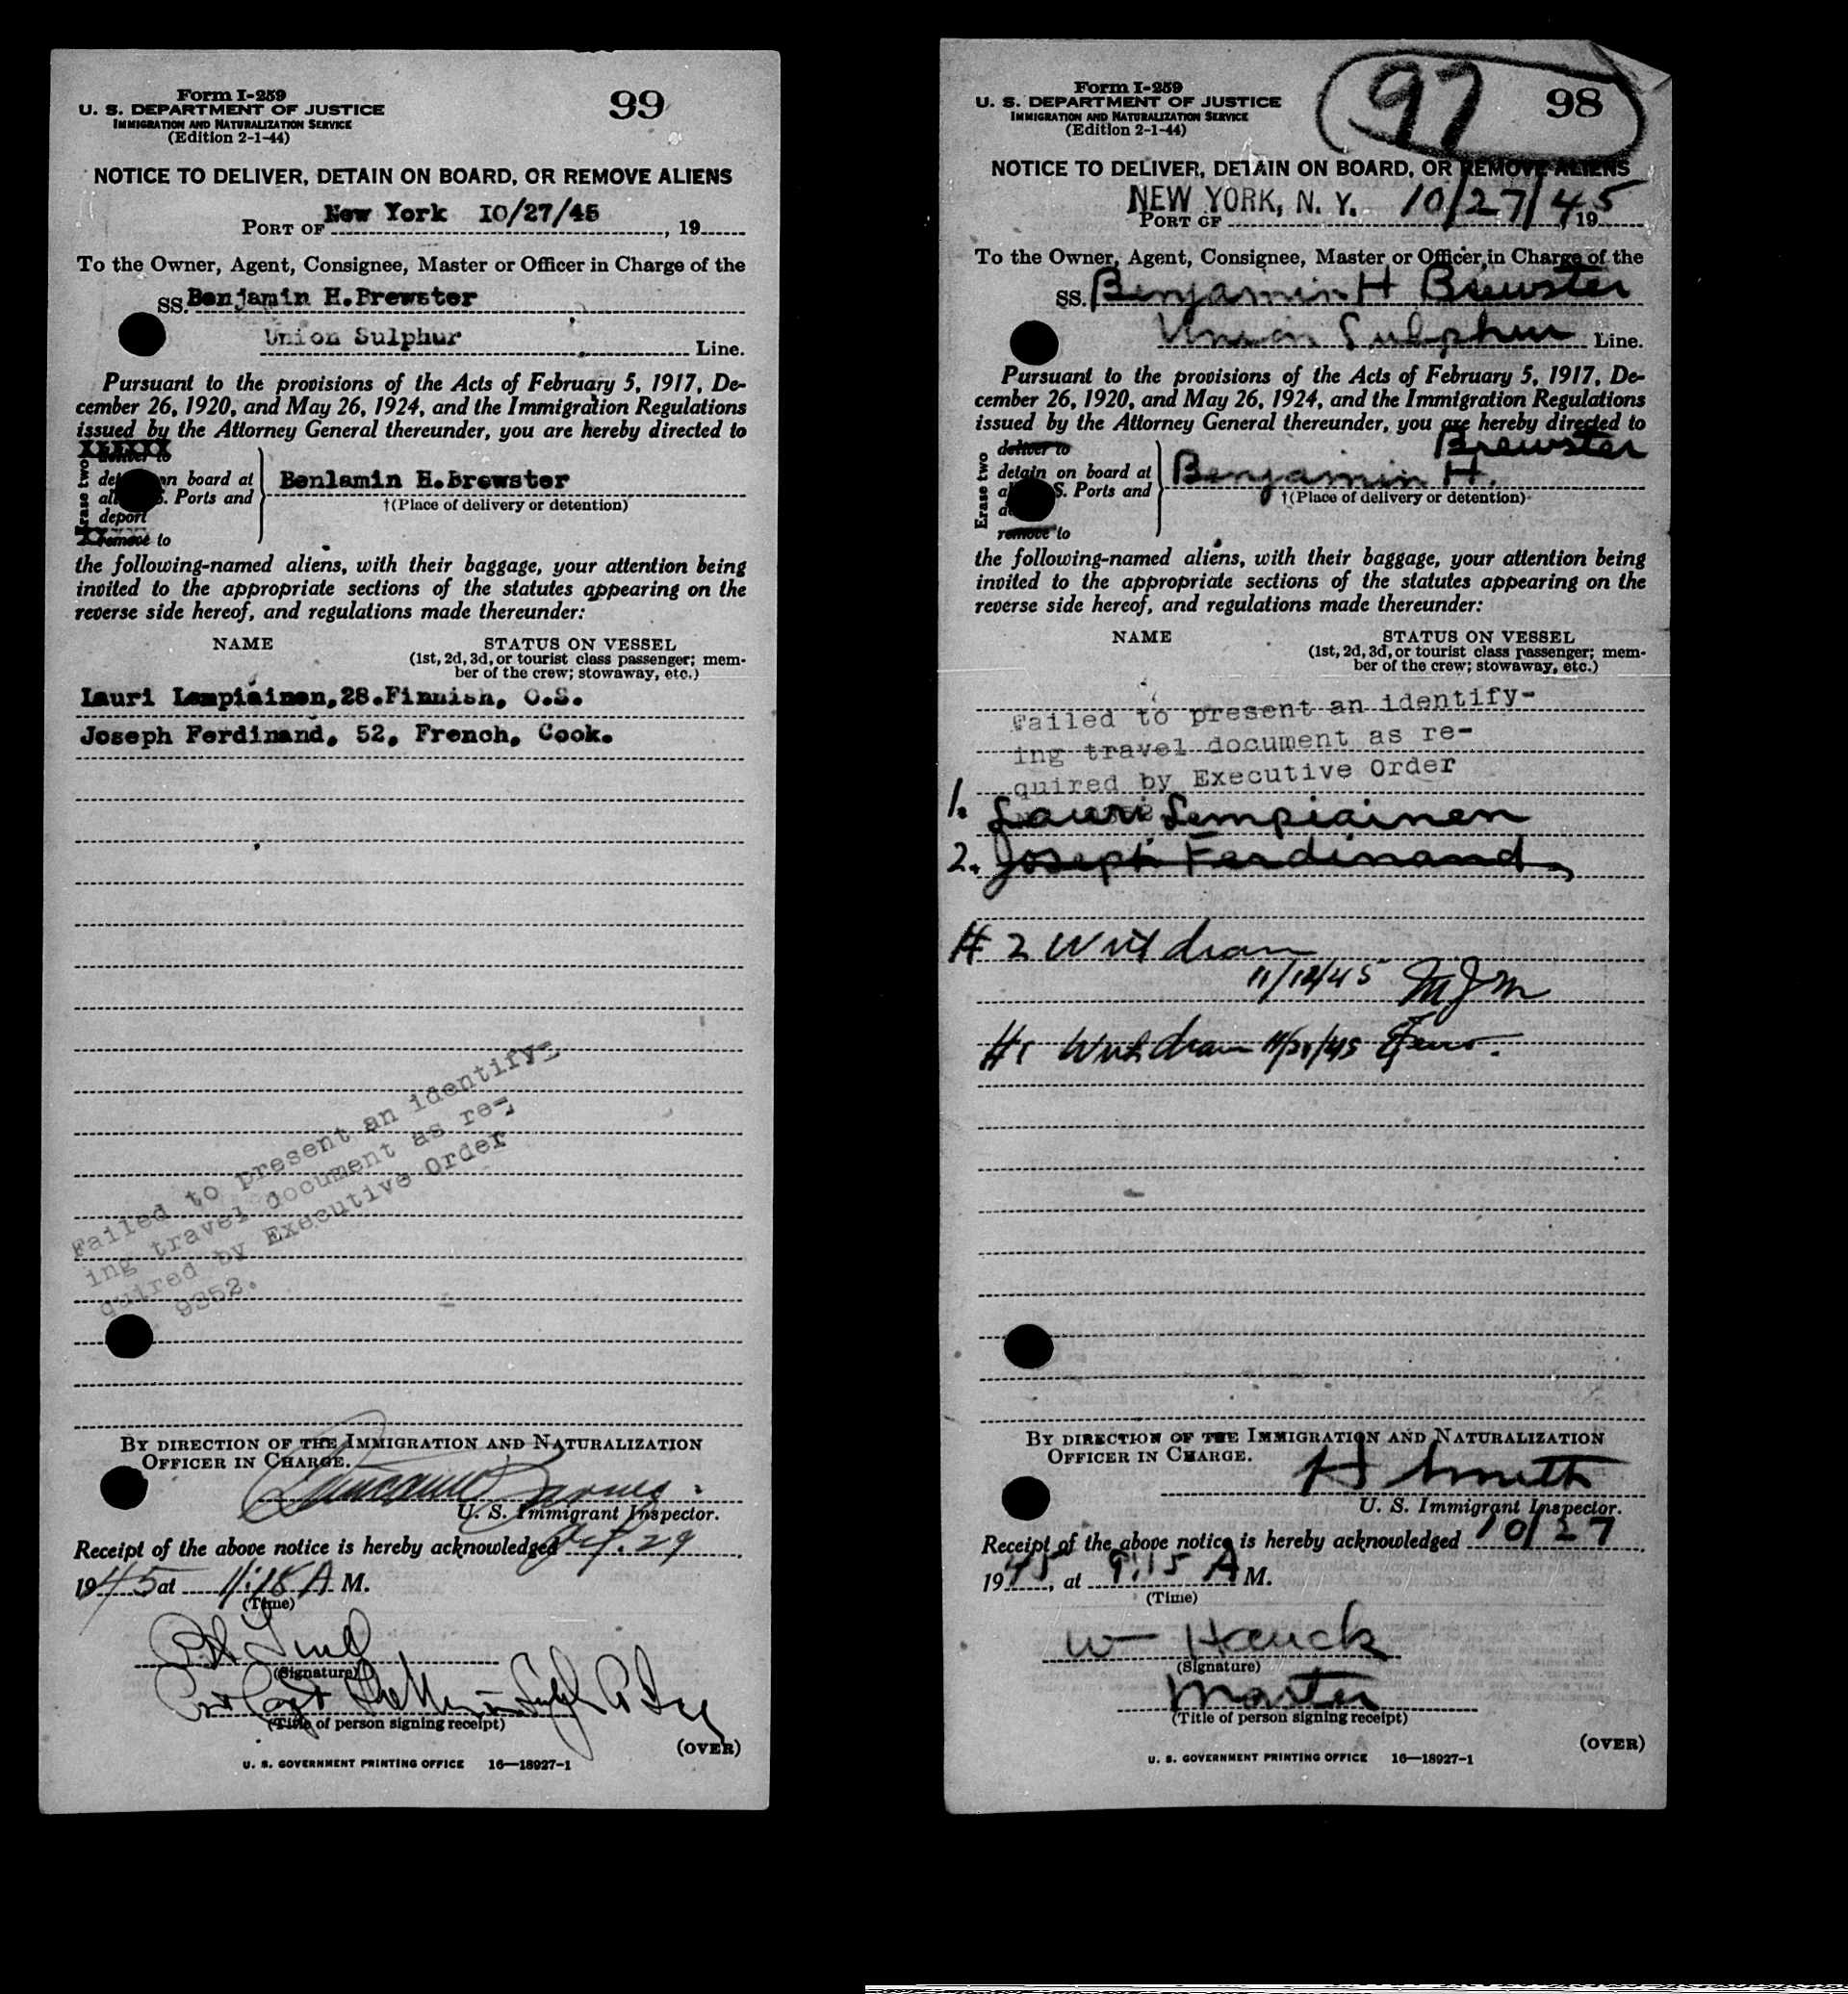 Form I-259
U. S. DEPARTMENT OF JUSTICE
IMMIGRATION AND NATURALIZATION SERVICE
(Edition 2-1-44)
99
NOTICE TO DELIVER, DETAIN ON BOARD, OR REMOVE ALIENS
New York 10/27/45
PORT OF , 19
To the Owner, Agent, Consignee, Master or Officer in Charge of the
SS. Benjamin H.Brewster
Union Sulphur
Line.
Pursuant to the provisions of the Acts of February 5, 1917, De-
cember 26, 1920, and May 26, 1924, and the Immigration Regulations
issued by the Attorney General thereunder, you are hereby directed to
Erase two
deliver to
on board at
Ports and
deport
remove to
Benlamin H.Brewster
†(Place of delivery or detention)
the following-named aliens, with their baggage, your attention being
invited to the appropriate sections of the statutes appearing on the
reverse side hereof, and regulations made thereunder:
NAME STATUS ON VESSEL
(1st, 2d, 3d, or tourist class passenger; mem-
ber of the crew; stowaway, etc.)
Lauri Lempiainen,28.Finnish, O.S.
Joseph Ferdinand, 52, French, Cook.
Failed to present an identify-
ing travel document as re-
quired by Executive Order
9352.
BY DIRECTION OF THE IMMIGRATION AND NATURALIZATION
OFFICER IN CHARGE.
U. S. Immigrant Inspector.
Receipt of the above notice is hereby acknowledged Oct. 29
1945 at 11:18 A M.
(Time)
(Signature)
(Title of person signing receipt)
(OVER)
U. S. GOVERNMENT PRINTING OFFICE 16—18927-1
Form I-259
U. S. DEPARTMENT OF JUSTICE
IMMIGRATION AND NATURALIZATION SERVICE
(Edition 2-1-44)
97 98
NOTICE TO DELIVER, DETAIN ON BOARD, OR REMOVE ALIENS
NEW YORK, N. Y. 10/27/45
PORT OF , 19
To the Owner, Agent, Consignee, Master or Officer in Charge of the
SS. Benjamin H Brewster
Union Sulphur Line.
Pursuant to the provisions of the Acts of February 5, 1917, De-
cember 26, 1920, and May 26, 1924, and the Immigration Regulations
issued by the Attorney General thereunder, you are hereby directed to
Erase two
deliver to
detain on board at
S. Ports and
remove to
Brewster
Benjamin H.
†(Place of delivery or detention)
the following-named aliens, with their baggage, your attention being
invited to the appropriate sections of the statutes appearing on the
reverse side hereof, and regulations made thereunder:
NAME STATUS ON VESSEL
(1st, 2d, 3d, or tourist class passenger; mem-
ber of the crew; stowaway, etc.)
Failed to present an identify-
ing travel document as re-
quired by Executive Order
1. Lauri Lempiainen
2. Joseph Ferdinand
# 2 Withdrawn
11/12/45 MJM
#1 Withdrawn
BY DIRECTION OF THE IMMIGRATION AND NATURALIZATION
OFFICER IN CHARGE.
H Smith
U. S. Immigrant Inspector.
Receipt of the above notice is hereby acknowledged 10/27
1945, at 9:15 A M.
(Time)
W Hauck
(Signature)
Master
(Title of person signing receipt)
(OVER)
U. S. GOVERNMENT PRINTING OFFICE 16—18927-1